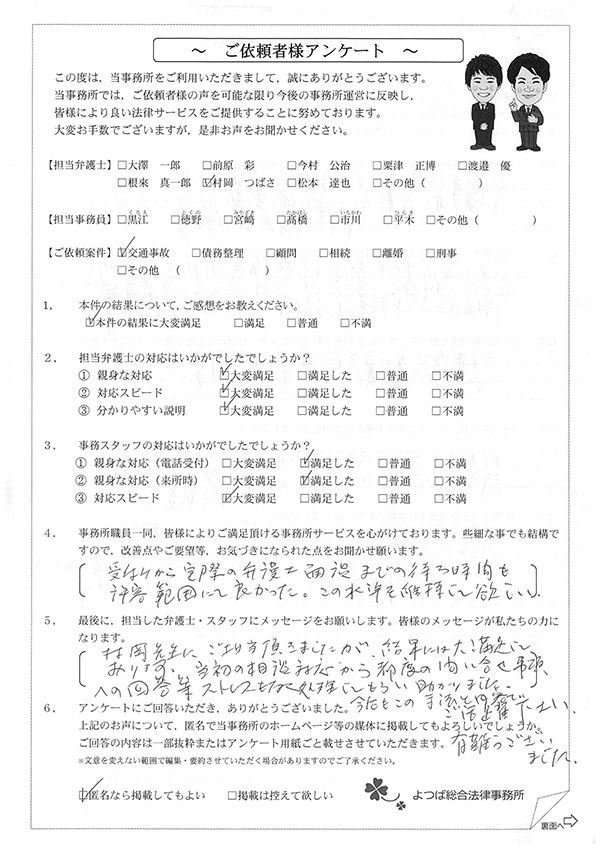 ～ ご依頼者様アンケート ～
この度は，当事務所をご利用いただきまして，誠にありがとうございます。
当事務所では，ご依頼者様の声を可能な限り今後の事務所運営に反映し，
皆様により良い法律サービスをご提供することに努めております。
大変お手数でございますが，是非お声をお聞かせください。
【担当弁護士】□大澤 一郎 □前原 彩 □今村 公治 □粟津 正博 □渡邉 優
□根來 真一郎 ☑村岡 つばさ □松本 達也 □その他（ ）
【担当事務員】□黒江 □徳野 □宮崎 □髙橋 □市川 □平木 □その他（ ）
【ご依頼案件】☑交通事故 □債務整理 □顧問 □相続 □離婚 □刑事
□その他 （ ）
1． 本件の結果について，ご感想をお教えください。
☑本件の結果に大変満足 □満足 □普通 □不満
2． 担当弁護士の対応はいかがでしたでしょうか？
① 親身な対応 ☑大変満足 □満足した □普通 □不満
② 対応スピード ☑大変満足 □満足した □普通 □不満
③ 分かりやすい説明 ☑大変満足 □満足した □普通 □不満
3． 事務スタッフの対応はいかがでしたでしょうか？
① 親身な対応（電話受付）□大変満足 ☑満足した □普通 □不満
② 親身な対応（来所時） □大変満足 ☑満足した □普通 □不満
③ 対応スピード ☑大変満足 □満足した □普通 □不満
4． 事務所職員一同，皆様によりご満足頂ける事務所サービスを心がけております。些細な事でも結構で
すので，改善点やご要望等，お気づきになられた点をお聞かせ願います。
受付から実際の弁護士面談までの待ち時間も
許容範囲にて良かった。この水準を維持して欲しい。
5． 最後に，担当した弁護士・スタッフにメッセージをお願いします。皆様のメッセージが私たちの力に
なります。
村岡先生にご担当頂きましたが、結果には大満足して
おります。当初の相談対応から都度の問い合せ事項
への回答等ストレスもなく処理してもらい助かりました。
今後もこの手法と内容で
ご活躍下さい。
有難うござい
ました。
6． アンケートにご回答いただき，ありがとうございました。
上記のお声について，匿名で当事務所のホームページ等の媒体に掲載してもよろしいでしょうか。
ご回答の内容は一部抜粋またはアンケート用紙ごと載せさせていただきます。
※文意を変えない範囲で編集・要約させていただく場合がありますのでご了承ください。
☑匿名なら掲載してもよい □掲載は控えて欲しい
よつば総合法律事務所
裏面へ